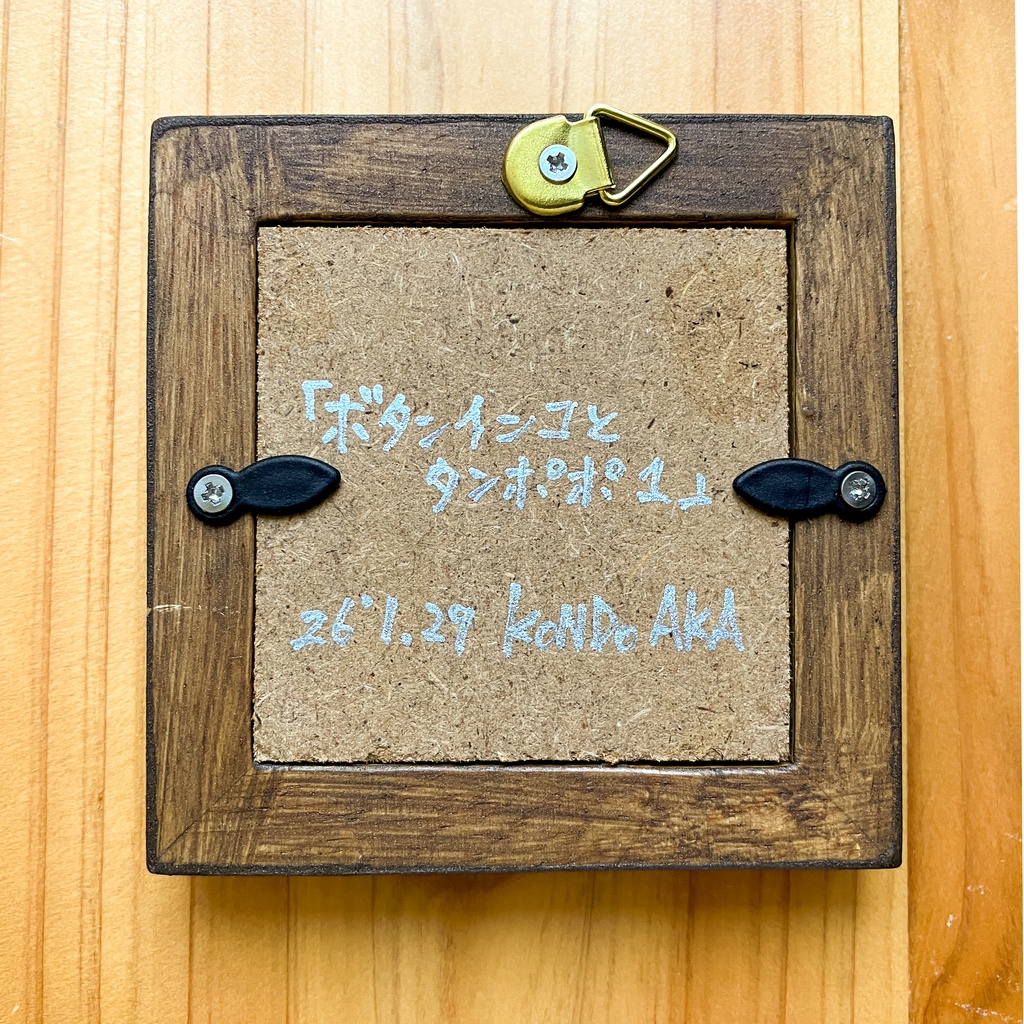 「ボタンインコと
タンポポ 1」
26'1.29 KONDO AKA